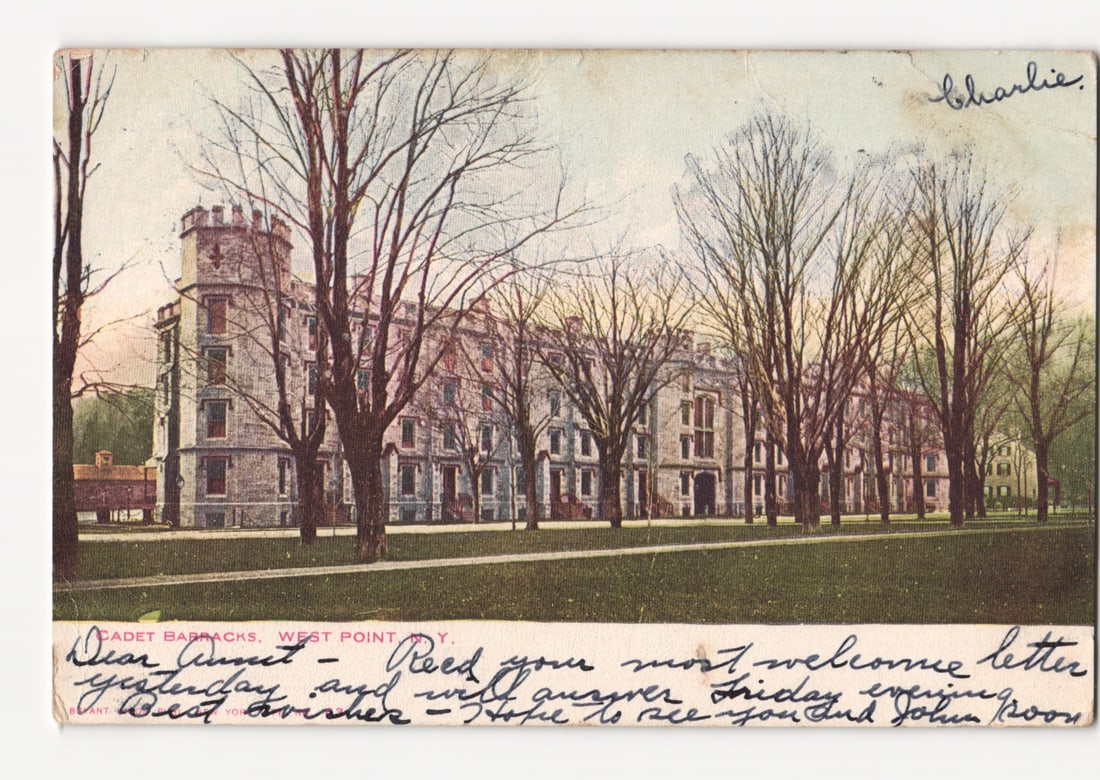 Charlie.
CADET BARRACKS, WEST POINT, N. Y.
Dear Aunt - Recd your most welcome letter
yesterday and will answer Friday evening
Best wishes - Hope to see you and John soon